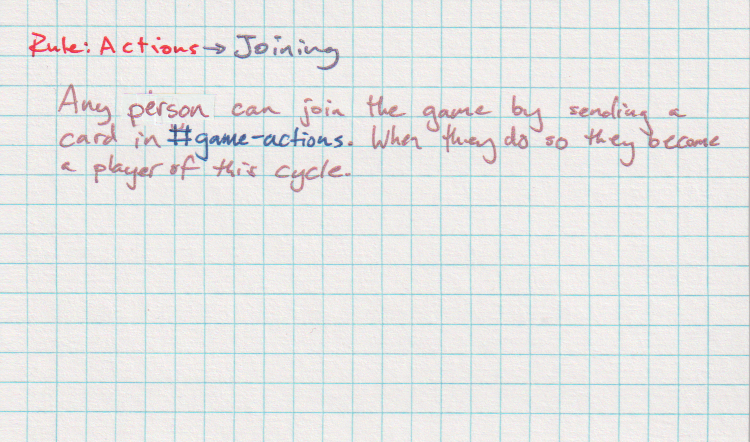 Rule: Actions → Joining
Any person can join the game by sending a
card in #game-actions. When they do so they become
a player of this cycle.